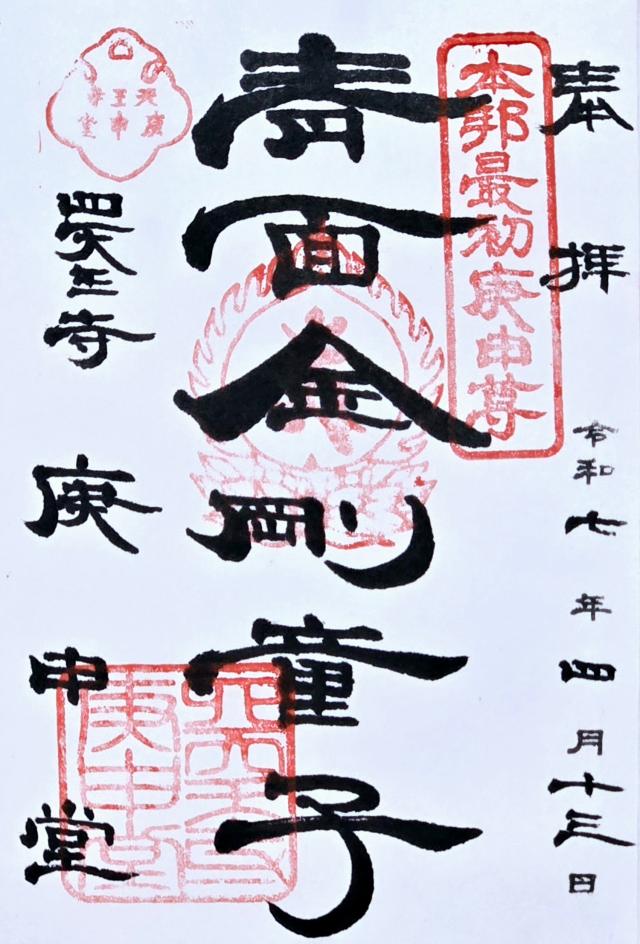 奉拝
令和七年四月十三日
本邦最初庚申尊
青面金剛童子
四天王寺
庚申堂
天王寺
庚申堂